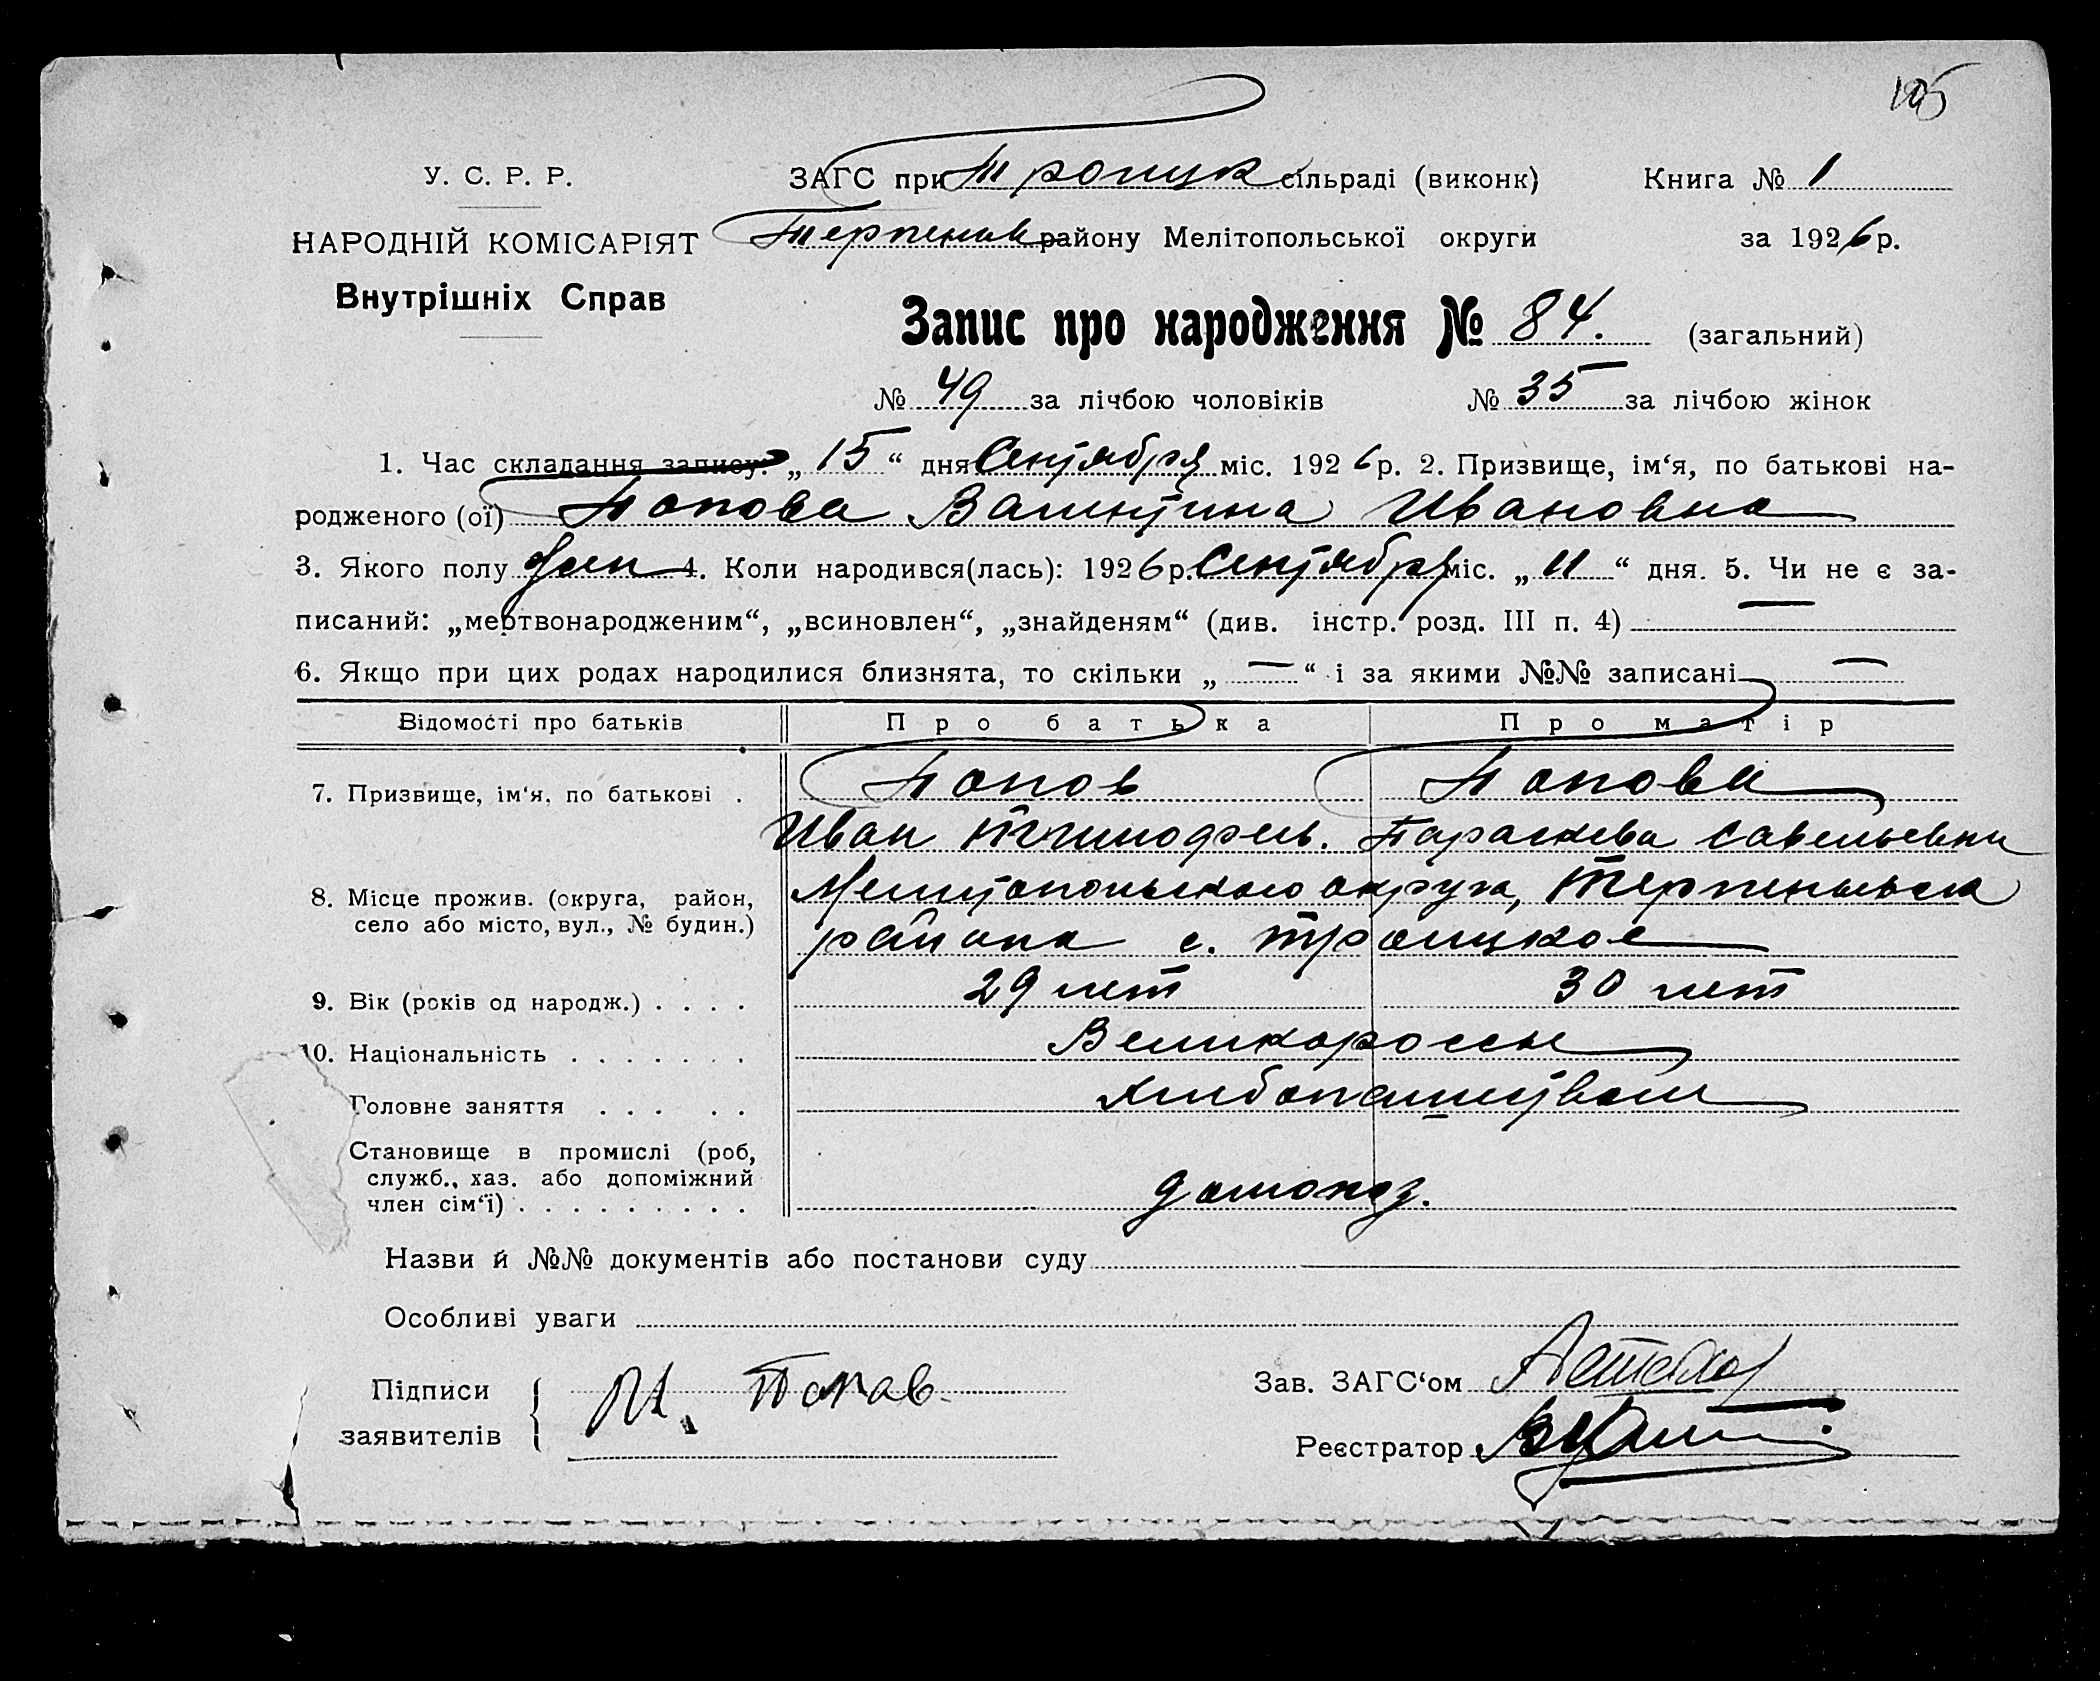 105
У. С. Р. Р.
НАРОДНІЙ КОМІСАРІЯТ
Внутрішніх Справ
ЗАГС при Троицк сільраді (виконк) Книга № 1
Терпенив району Мелітопольської округи за 1926 р.
Запис про народження № 84. (загальний)
№ 49 за лічбою чоловіків № 35 за лічбою жінок
1. Час складання запису: „ 15 “ дня Сентября міс. 1926 р. 2. Призвище, ім‘я, по батькові на-
родженого (ої) Попова Валентина Ивановна
3. Якого полу жен 4. Коли народився(лась): 1926 р. Сентября міс. „ 11 “ дня. 5. Чи не є за-
писаний: „мертвонародженим“, „всиновлен“, „знайденям“ (див. інстр. розд. III п. 4) —
6. Якщо при цих родах народилися близнята, то скільки „ — “ і за якими №№ записані —
Відомості про батьків Про батька Про матір
7. Призвище, ім‘я, по батькові . Попов Попова
Иван Тимофеев. Параскева Савельевна
8. Місце прожив. (округа, район, село або місто, вул., № будин.) Мелитопольского округа, Терпеньевск
района с. Троицкое
9. Вік (років од народж.) . . . . 29 лет 30 лет
10. Національність . . . . . . . Великороссы
Головне заняття . . . . . Хлебопашеством
Становище в промислі (роб,
служб., хаз. або допоміжний
член сім‘ї) . . . . . . . . . домохоз.
Назви й №№ документів або постанови суду
Особливі уваги
Підписи заявителів { И. Попов
Зав. ЗАГС‘ом
Реєстратор